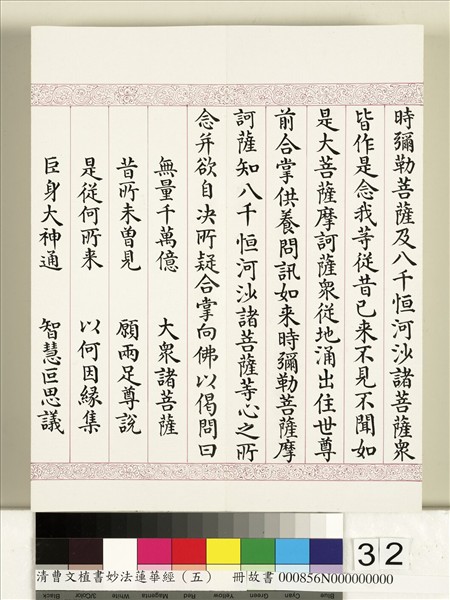 時彌勒菩薩及八千恒河沙諸菩薩衆
皆作是念我等從昔已来不見不聞如
是大菩薩摩訶薩衆從地涌出住世尊
前合掌供養問訊如来時彌勒菩薩摩
訶薩知八千恒河沙諸菩薩等心之所
念并欲自决所疑合掌向佛以偈問曰
無量千萬億 大衆諸菩薩
昔所未曽見 願兩足尊說
是從何所来 以何因縁集
巨身大神通 智慧叵思議
32
清曹文植書妙法蓮華經（五） 冊故書 000856N000000000
Black 3/Color White Magenta Yellow Green Cyan Blue